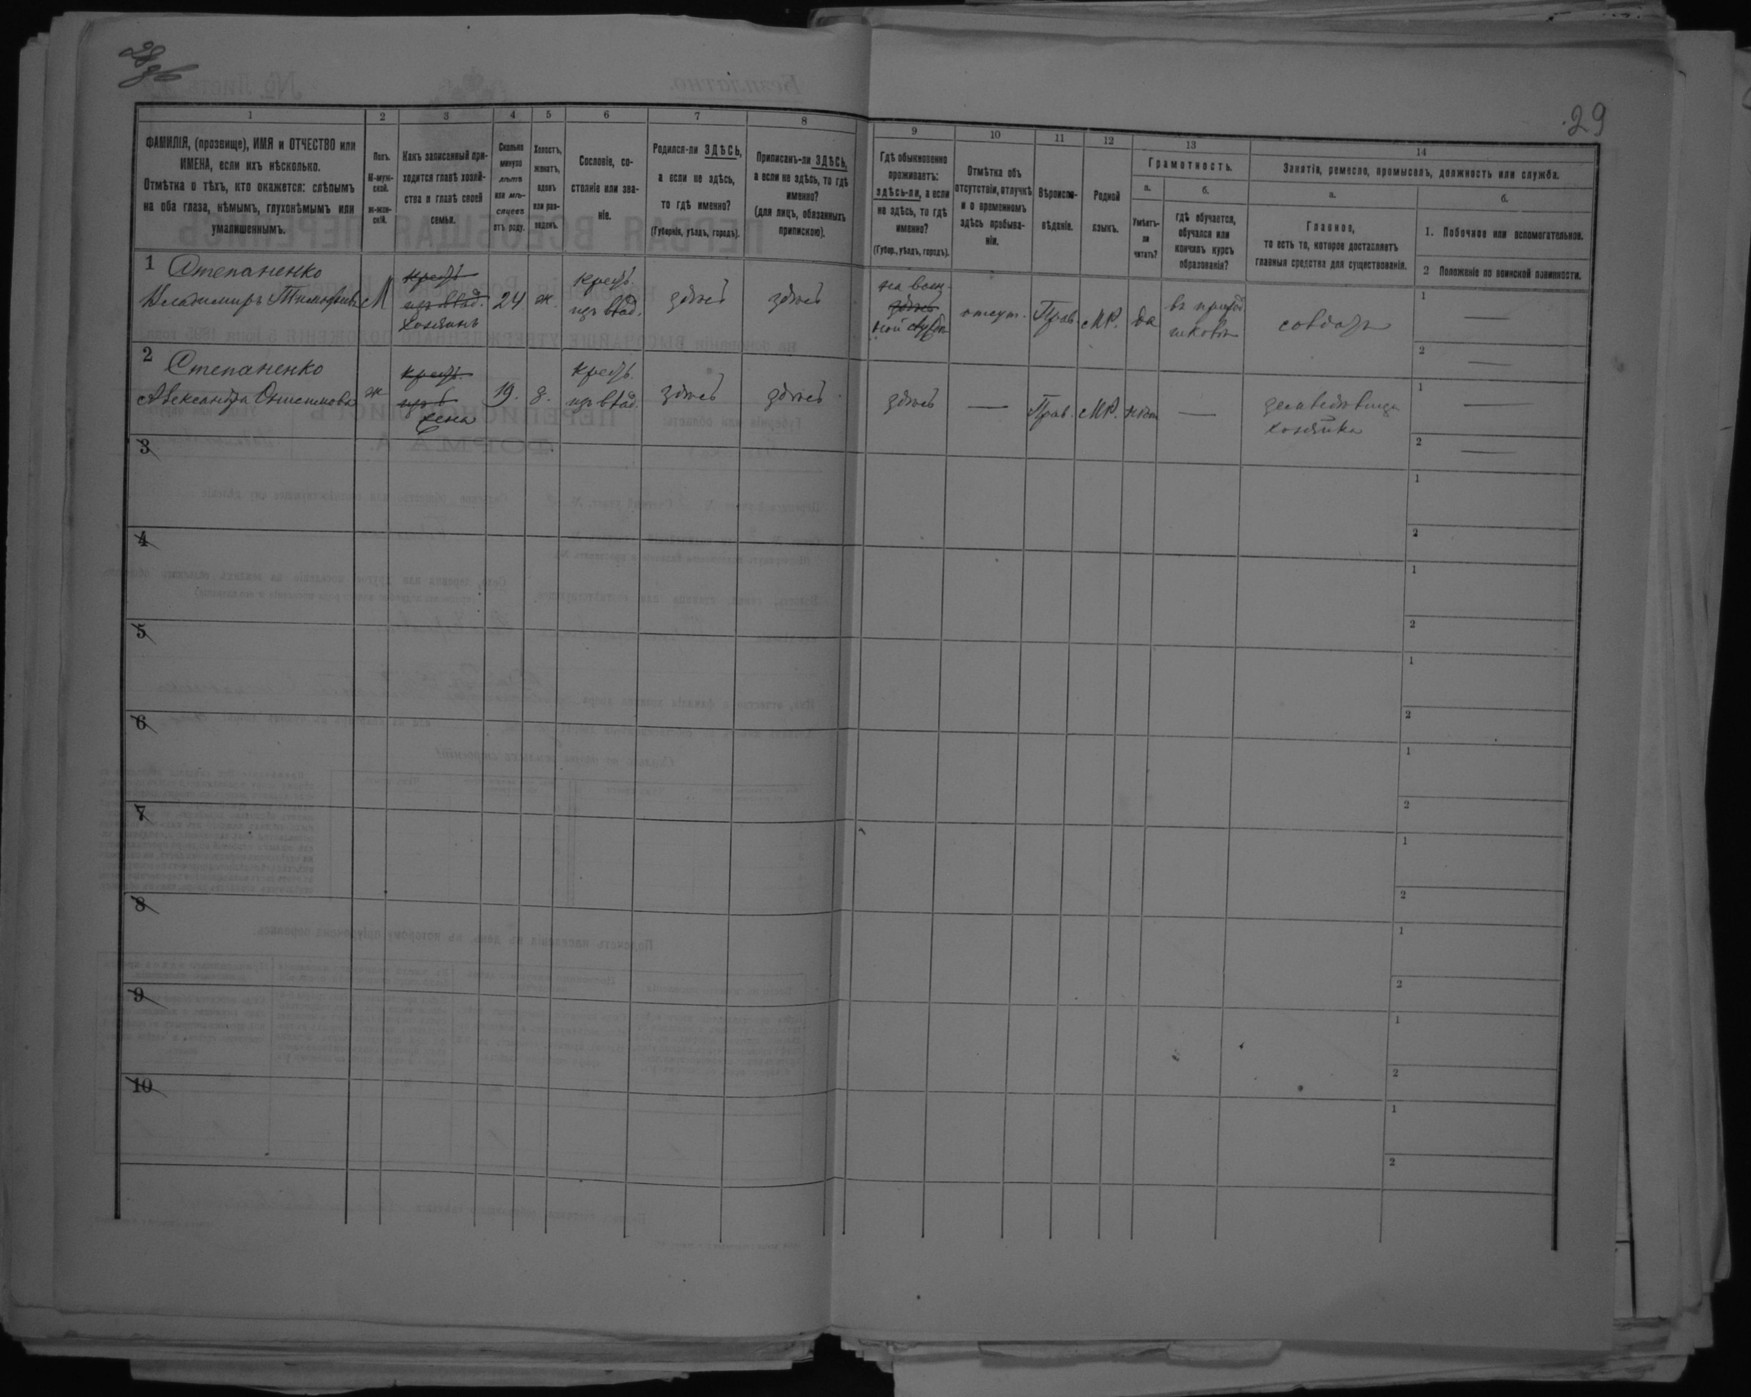 29
1
2
3
4
5
6
7
8
9
10
11
12
13
14
ФАМИЛІЯ, (прозвище), ИМЯ и ОТЧЕСТВО или
ИМЕНА, если ихъ нѣсколько.
Отмѣтка о тѣхъ, кто окажется: слѣпымъ
на оба глаза, нѣмымъ, глухонѣмымъ или
умалишеннымъ.
Полъ.
М-муж-
ской.
ж-жен-
скій.
Какъ записанный при-
ходится главѣ хозяй-
ства и главѣ своей
семьи.
Сколько
минуло
лѣтъ
или мѣ-
сяцевъ
отъ роду.
Холостъ,
женатъ,
вдовъ
или раз-
веденъ.
Сословіе, со-
стояніе или зва-
ніе.
Родился-ли ЗДѢСЬ,
а если не здѣсь,
то гдѣ именно?
(Губернія, уѣздъ, городъ).
Приписанъ-ли ЗДѢСЬ,
а если не здѣсь, то гдѣ
именно?
(для лицъ, обязанныхъ
припискою).
Гдѣ обыкновенно
проживаетъ:
здѣсь-ли, а если
не здѣсь, то гдѣ
именно?
(Губер., уѣздъ, городъ).
Отмѣтка объ
отсутствіи, отлучкѣ
и о временномъ
здѣсь пребыва-
ніи.
Вѣроиспо-
вѣданіе.
Родной
языкъ.
Грамотность.
а.
Умѣетъ-
ли
читать?
б.
гдѣ обучается,
обучался или
кончилъ курсъ
образованія?
Занятіе, ремесло, промыселъ, должность или служба.
а.
Главное,
то есть то, которое доставляетъ
главныя средства для существованія.
б.
1. Побочное или вспомогательное.
2 Положеніе по воинской повинности.
1 Степаненко
Владимиръ Тимофеев М
хозяинъ
24 ж.
крест.
изъ влад.
здѣсь
здѣсь
на воен-
здѣсь
ной службѣ
отсут.
Прав.
МР.
да
солдатъ
1
2
2 Степаненко
Александра Онисимова ж
жена
19. з.
крест.
изъ влад.
здѣсь
здѣсь
здѣсь
—
Прав. МР. нѣтъ
—
хозяйка
1
2
3
1
2
4
1
2
5
1
2
6
1
2
7
1
2
8
1
2
9
1
2
10
1
2